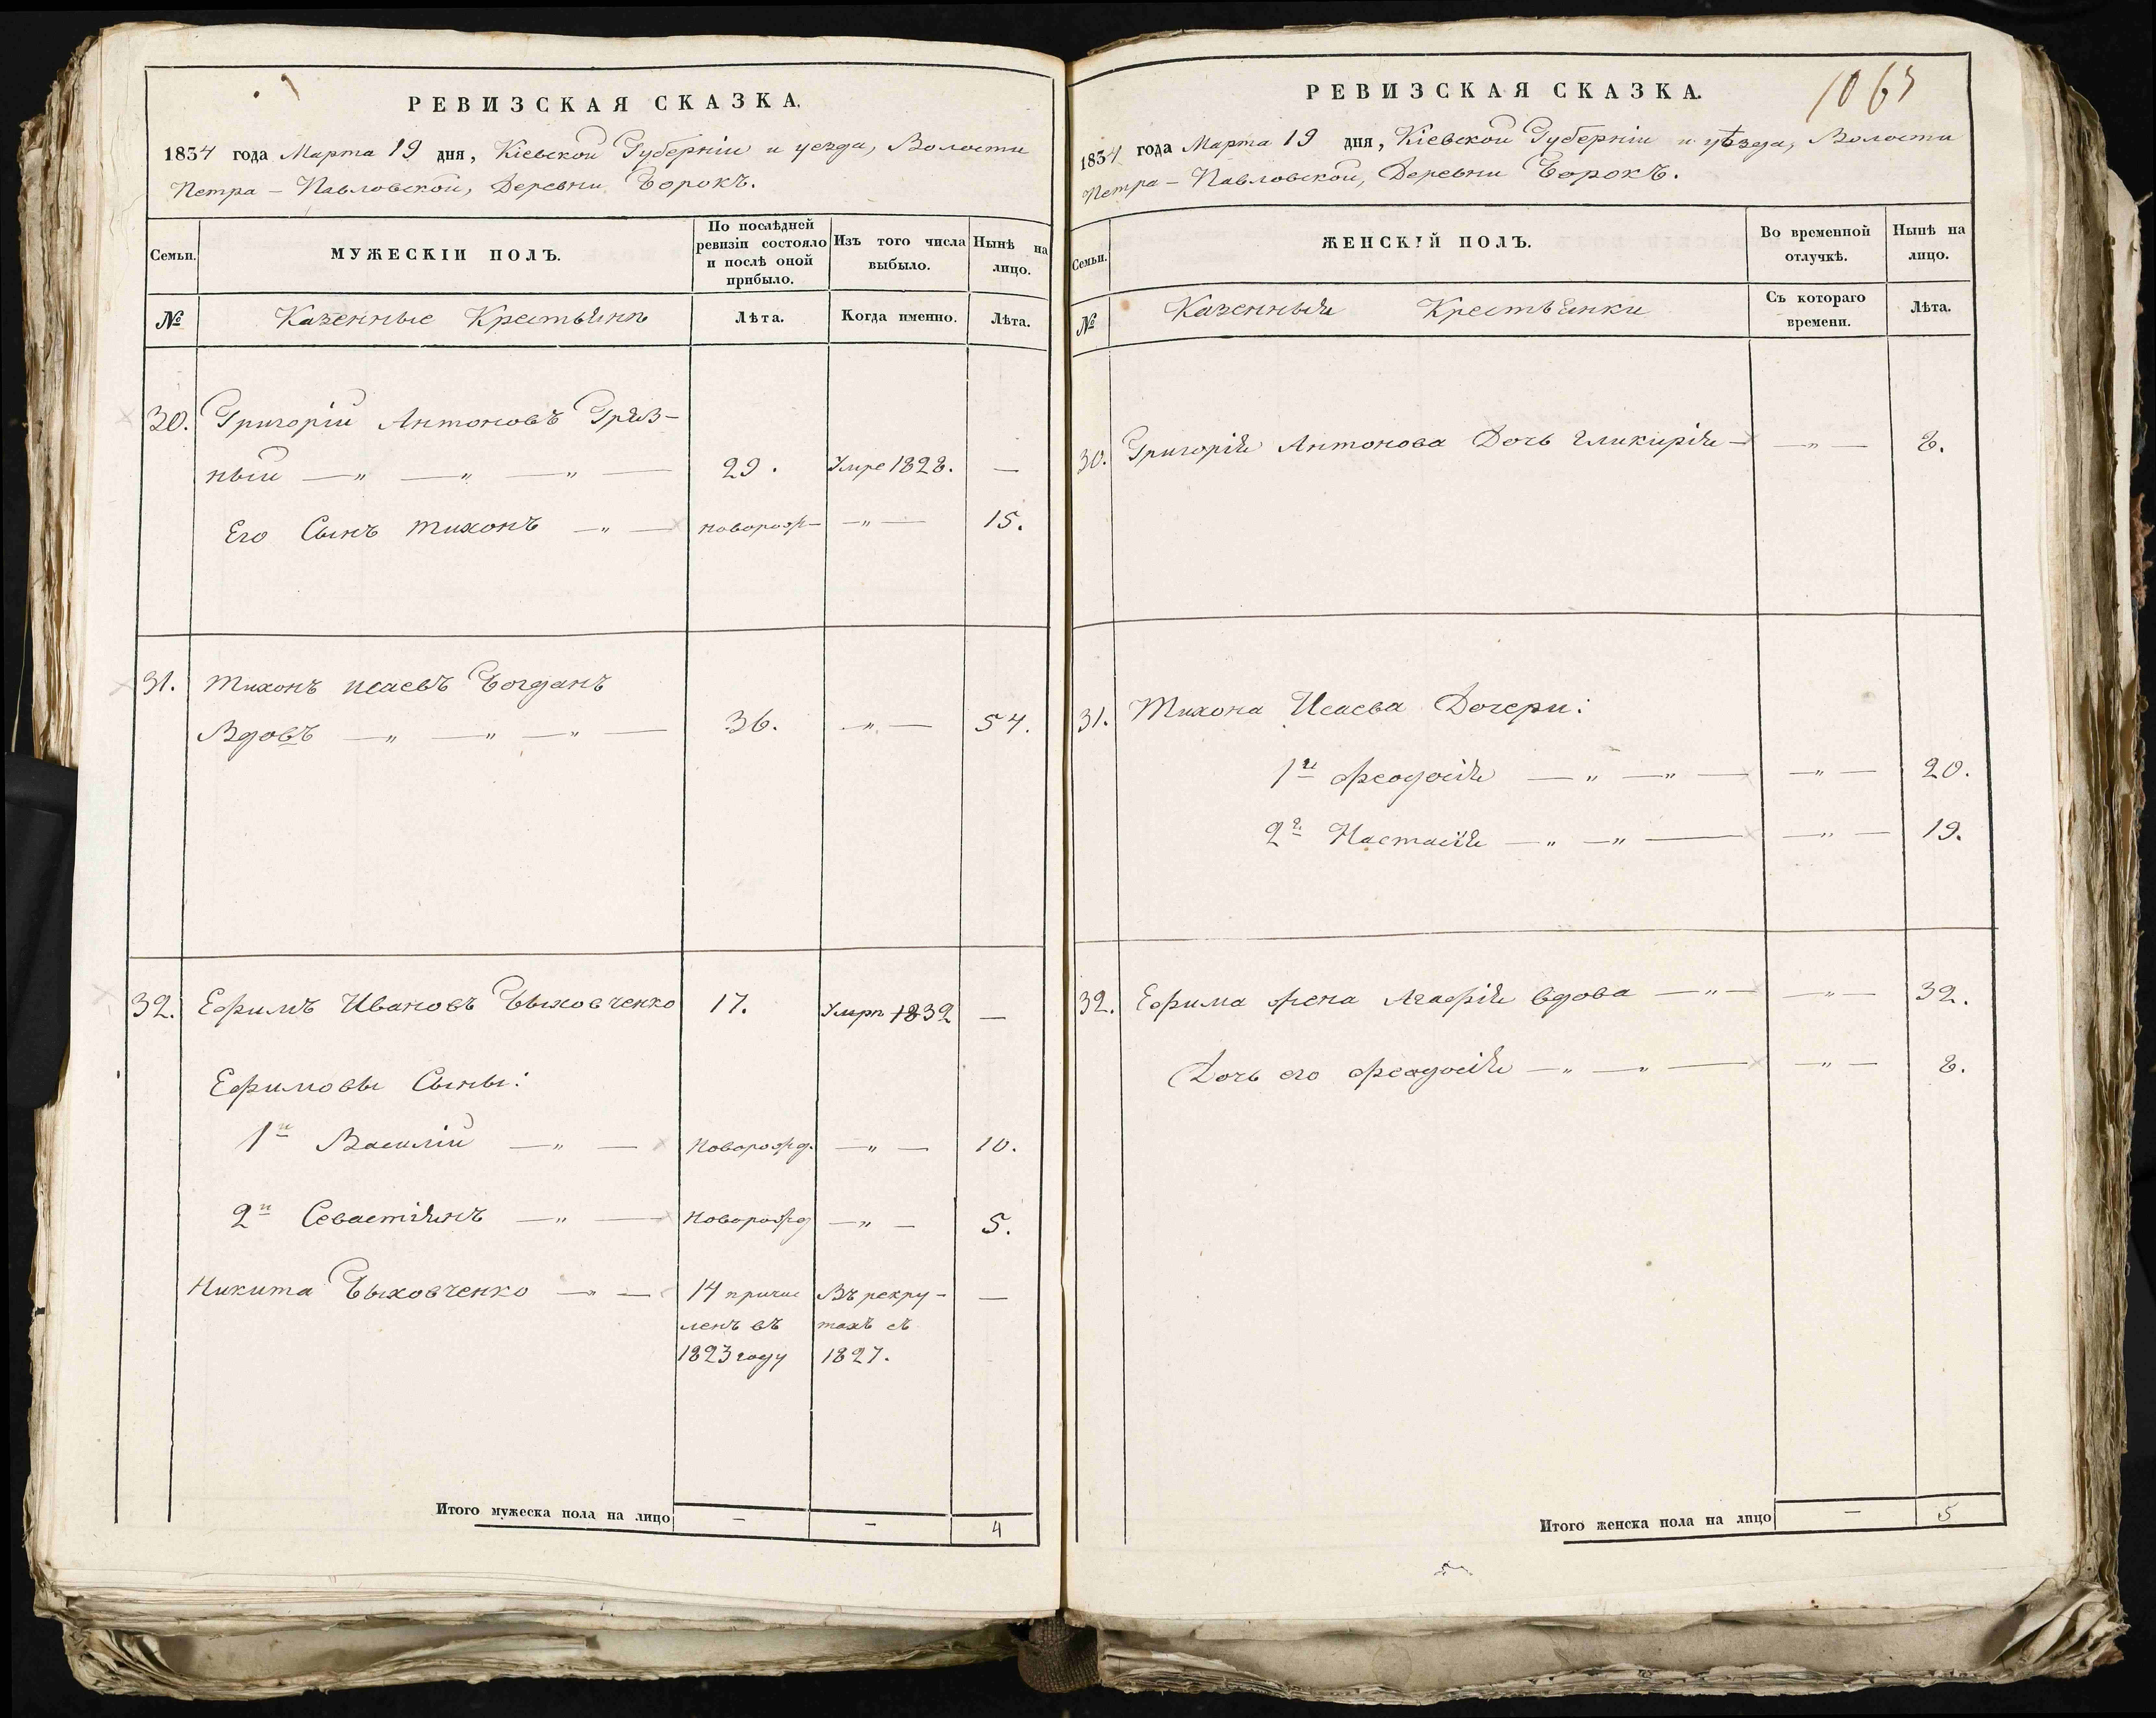 РЕВИЗСКАЯ СКАЗКА.
1834 года Марта 19 дня, Кіевской Губерніи и уезда, Волости
Петра - Павловской, Деревни Борокъ.
Семьи.
МУЖЕСКІЙ ПОЛЪ.
По послѣдней ревизіи состояло и послѣ оной прибыло.
Изъ того числа выбыло.
Нынѣ на лицо.
№
Казенные Крестьяне
Лѣта.
Когда именно.
Лѣта.
30. Григорій Антоновъ Гряз-
ный — „ — „ — „ — 29. Умре 1828. —
Его Сынъ Тихонъ — „ — новорож — — „ — 15.
31. Тихонъ Исаевъ Богданъ
Вдовъ — „ — „ — „ — 36. — „ — 54.
32. Ефимъ Ивановъ Быховченко 17. Умре 1832 —
Ефимовы Сыны:
1й Василій — „ — Новорожд. — „ — 10.
2й Севастіянъ — „ — Новорожд — „ — 5.
Никита Быховченко — „ — 14 причис Въ рекру- —
ленъ въ тахъ съ
1823 году 1827.
Итого мужеска пола на лицо — — 4
РЕВИЗСКАЯ СКАЗКА.
1834 года Марта 19 дня, Кіевской Губерніи и уѣзда, Волости
Петра - Павловской, Деревни Борокъ.
Семьи.
ЖЕНСКІЙ ПОЛЪ.
Во временной отлучкѣ.
Нынѣ на лицо.
№
Казенныя Крестьянки
Съ котораго времени.
Лѣта.
30. Григорія Антонова Дочь Гликирія — — „ — 8.
31. Тихона Исаева Дочери:
1я Феодосія — „ — „ — — „ — 20.
2я Настасія — „ — „ — — „ — 19.
32. Ефима жена Агафія вдова — „ — — „ — 32.
Дочь его Феодосія — „ — „ — — „ — 8.
Итого женска пола на лицо — 5